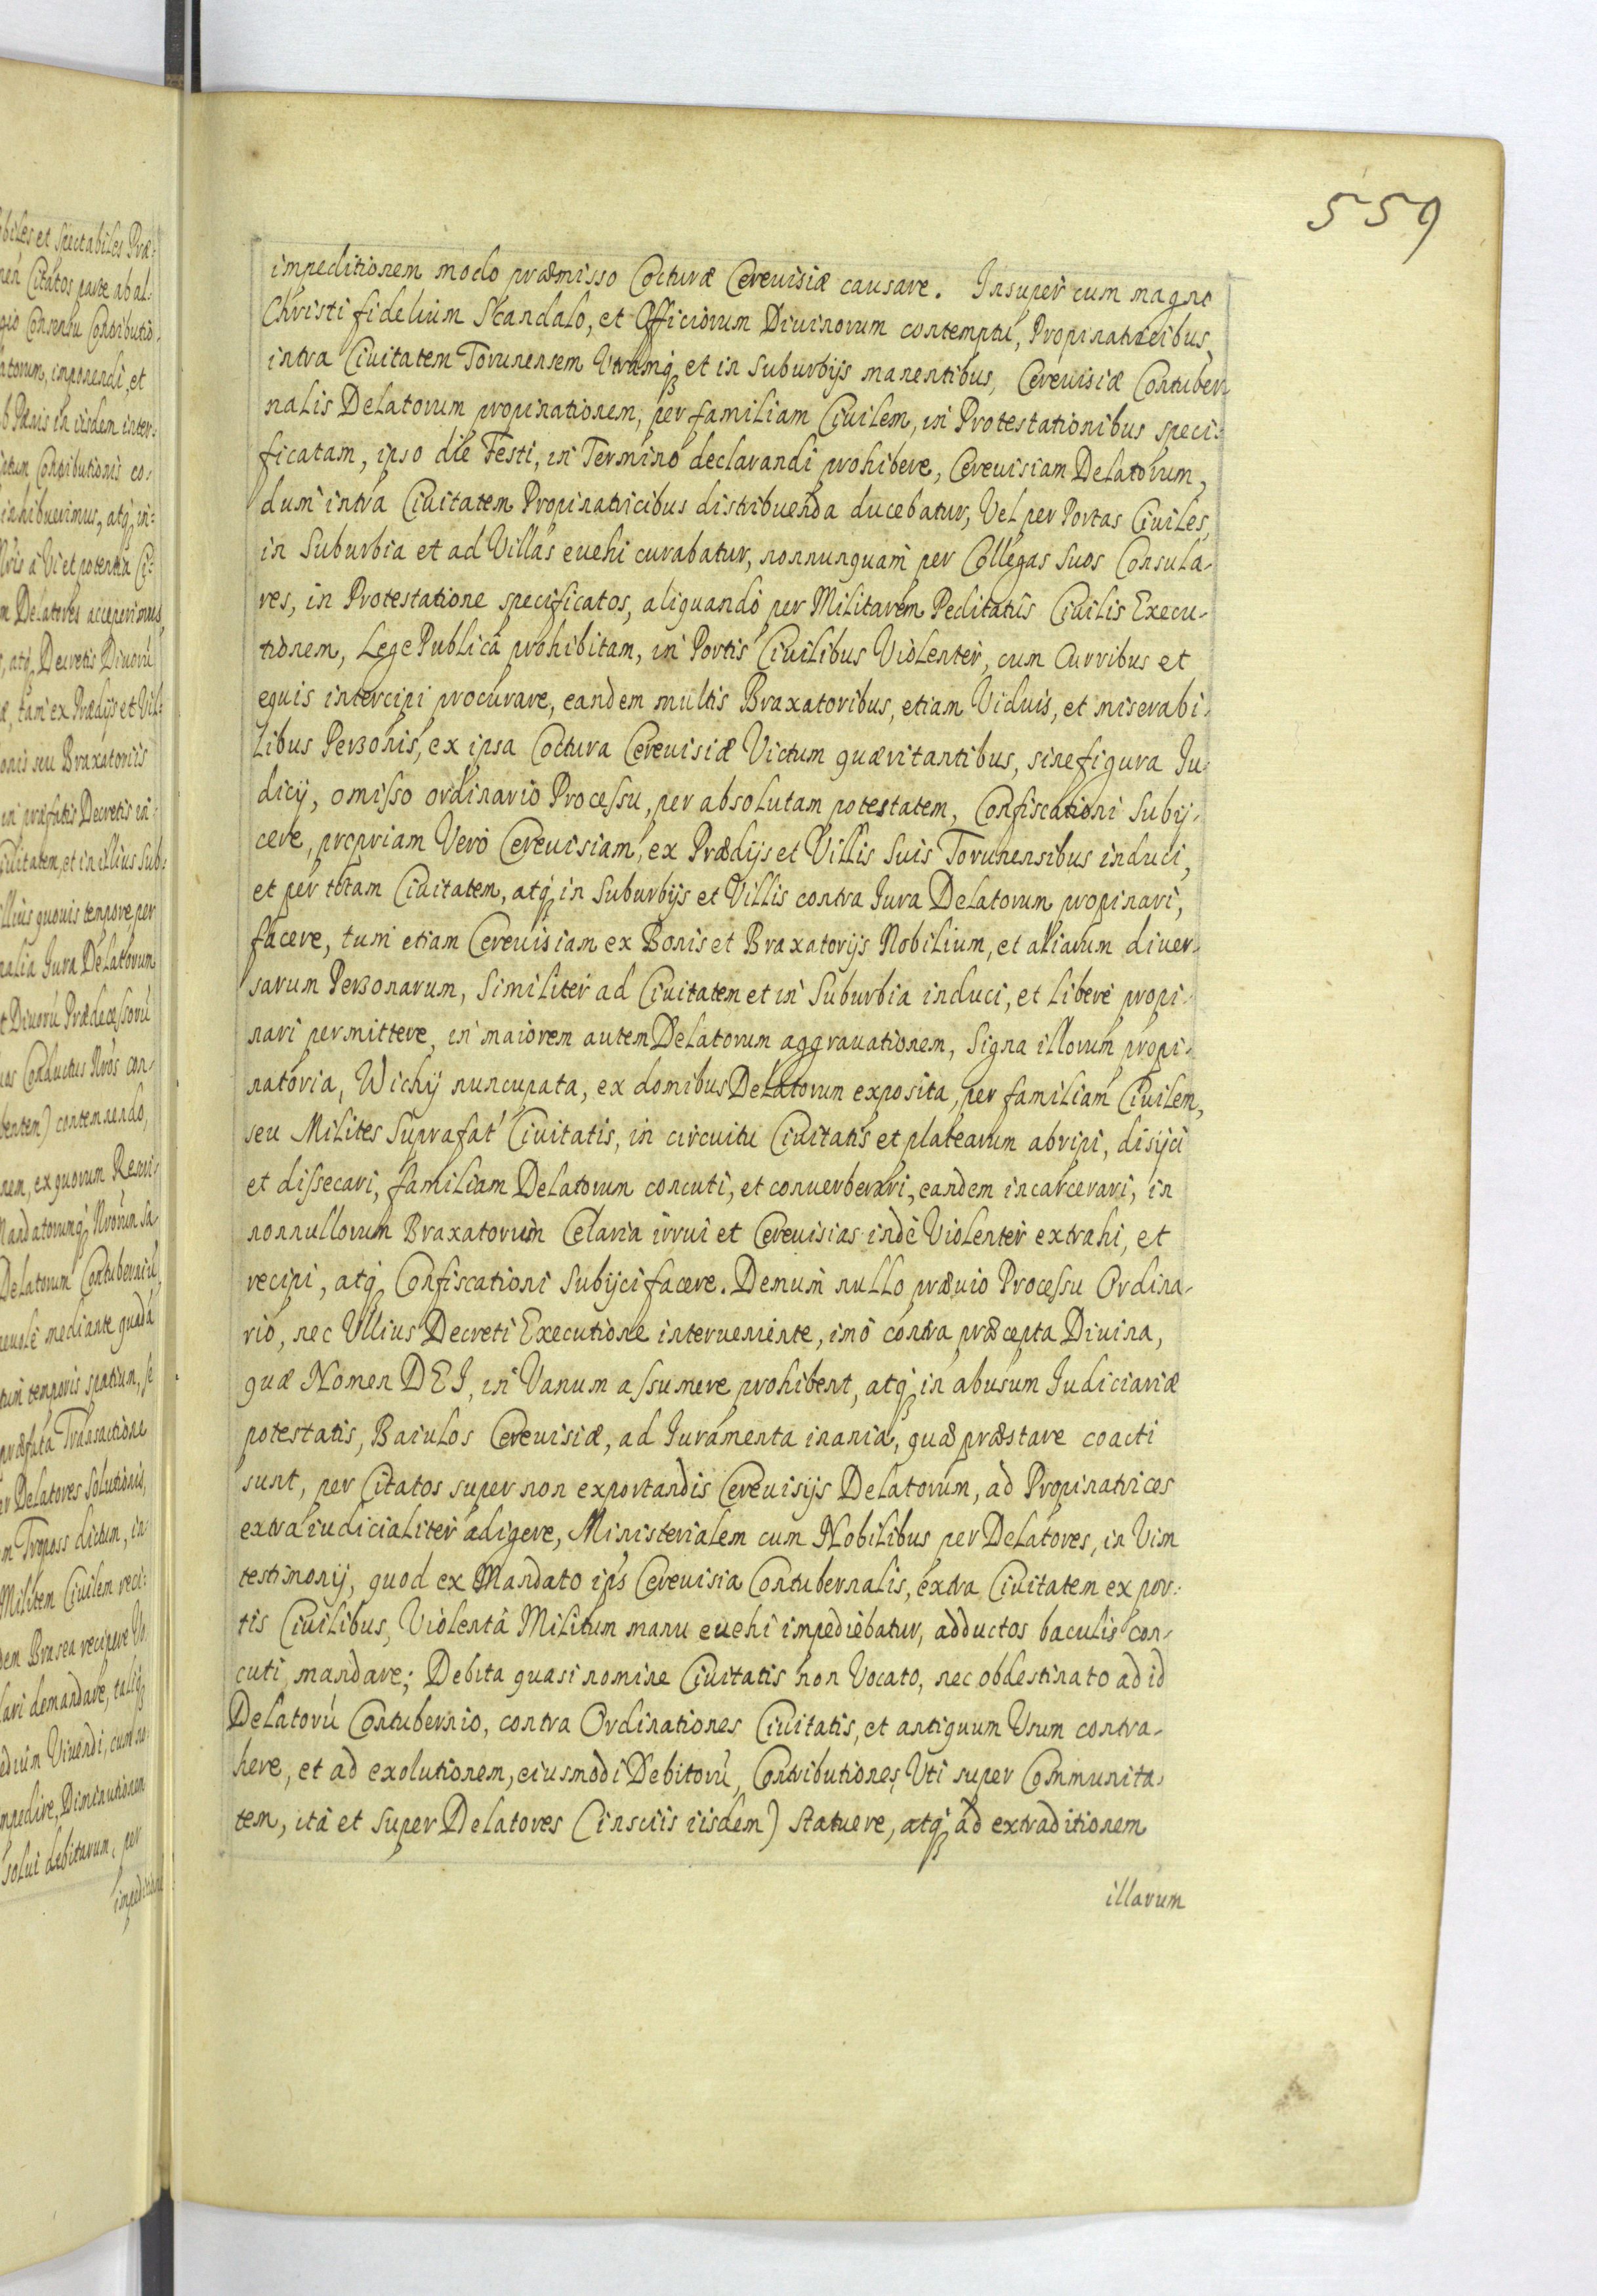 559
impeditionem modo præmisso Cocturæ Cereuisiæ causare. Insuper cum magno
Christi fidelium Scandalo, et Officiorum Diuinorum contemptu, Propinatricibus
intra Ciuitatem Torunensem Utramq et in Suburbijs manentibus, Cereuisiæ Contuber
nalis Delatorum propinationem, per familiam Ciuilem, in Protestationibus speci-
ficatam, ipso die Festi, in Termino declarandi prohibere, Cereuisiam Delatorum,
dum intra Ciuitatem Propinatricibus distribuenda ducebatur, Vel per Portas Ciuiles,
in Suburbia et ad Villas euehi curabatur, nonnunquam per Collegas Suos Consula-
res, in Protestatione specificatos, aliquando per Militarem Peditatus Ciuilis Execu-
tionem, Lege Publicâ prohibitam, in Portis Ciuilibus Violenter, cum Curribus et
equis intercipi procurare, eandem multis Braxatoribus, etiam Viduis, et miserabi-
libus Personis, ex ipsa Coctura Cereuisiæ Victum quæritantibus, sine figura Ju-
dicij, omisso ordinario Processu, per absolutam potestatem, Confiscationi Subij-
cere, propriam Verò Cereuisiam, ex Prædijs et Villis Suis Torunensibus induci,
et per totam Ciuitatem, atq in Suburbijs et Villis contra Jura Delatorum propinari,
facere, tum etiam Cereuisiam ex Bonis et Braxatorijs Nobilium, et aliarum diuer-
sarum Personarum, Similiter ad Ciuitatem et in Suburbia induci, et libere propi-
nari permittere, in maiorem autem Delatorum aggrauationem, Signa illorum propi-
natoria, Wichÿ nuncupata, ex domibus Delatorum exposita, per familiam Ciuilem,
seu Milites Suprafat Ciuitatis, in circuitu Ciuitatis et platearum abripi, disijci
et dissecari, familiam Delatorum concuti, et conuerberari, eandem incarcerari, in
nonnullorum Braxatorum Celaria irrui et Cereuisias inde Violenter extrahi, et
recipi, atq Confiscationi Subijci facere. Demum nullo præuio Processu Ordina-
rio, nec Ullius Decreti Executione interueniente, imò contra præcepta Diuina,
quæ Nomen DEI, in Vanum assumere prohibent, atq in abusum Judiciariæ
potestatis, Baiulos Cereuisiæ, ad Juramenta inania, quæ præstare coacti
sunt, per Citatos super non exportandis Cereuisijs Delatorum, ad Propinatrices
extraiudicialiter adigere, Ministerialem cum Nobilibus per Delatores, in Vim
testimonij, quod ex Mandato ips Cereuisia Contubernalis, extra Ciuitatem ex por-
tis Ciuilibus, Violentâ Militum manu euehi impediebatur, adductos baculis con-
cuti mandare; Debita quasi nomine Ciuitatis non Vocato, nec obdestinato ad id
Delatorũ Contubernio, contra Ordinationes Ciuitatis, et antiquum Usum contra-
here, et ad exolutionem, eiusmodi Debitorũ, Contributiones, Uti super Communita-
tem, ità et Super Delatores (insciis iisdem) statuere, atq ad extraditionem
illarum